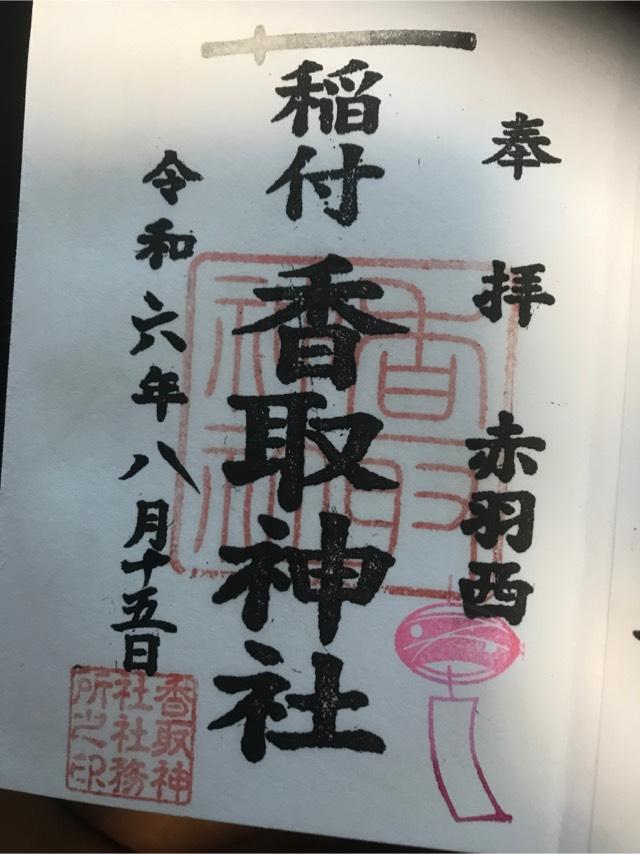 奉拝 赤羽西
稲付 香取神社
令和六年八月十五日
香取神社
香取神
社社務
所之印